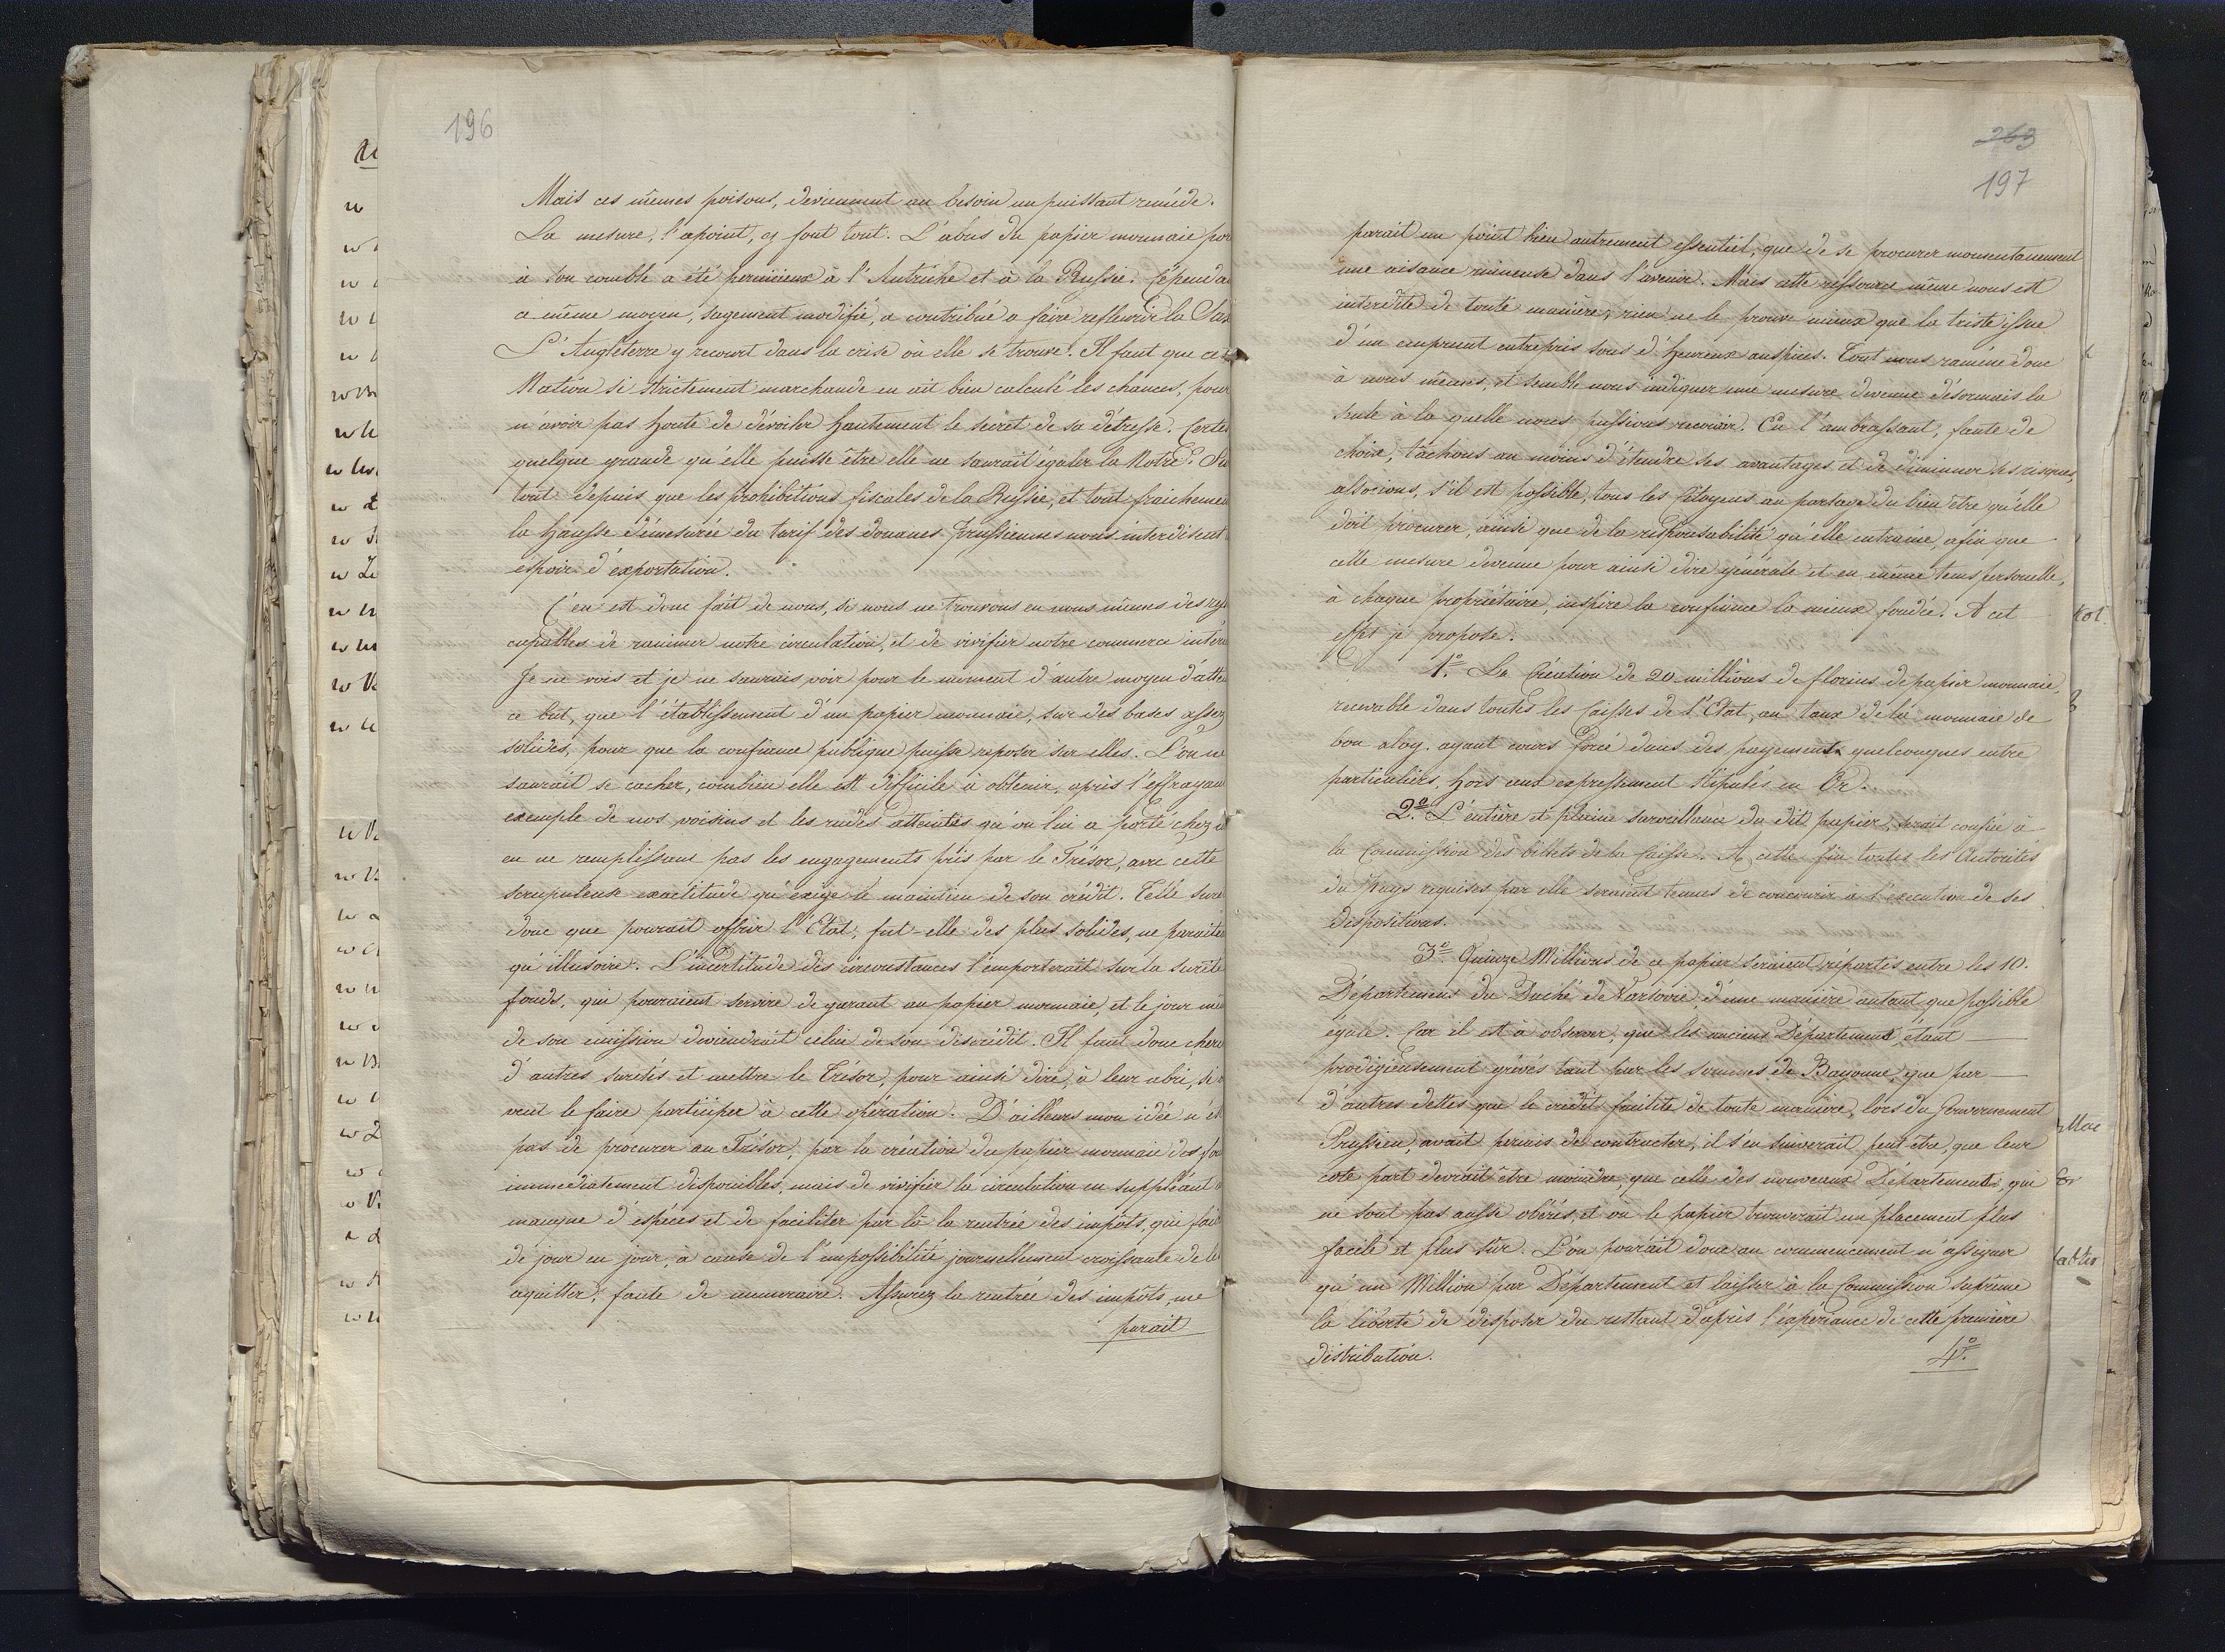 196
Mais ces mêmes poisons, deviennent au besoin un puissant remède.
La mesure, l'apoint, y font tout. L'abus du papier monnaie por
à son comble a été pernicieux à l'Autriche et à la Russie. Cépenda
ce même moyen, sagement modifié, a contribué a faire refleurir la Sax
L'Angleterre y recourt dans la crise où elle se trouve. Il faut que cet
Nation si strictement marchande en ait bien calculé les chances, pour
n'avoir pas honte de dévoiler hautement le secret de sa détresse. Certes
quelque grande qu'elle puisse être elle ne saurait égaler la Notre. Su
tout depuis que les prohibitions fiscales de la Russie, et tout fraichemen
la hausse démesurée du tarif des douanes prussiennes nous interdisent
espoir d'exportation.
C'en est donc fait de nous, si nous ne trouvons en nous mêmes des re
capables de ranimer notre circulation, et de vivifier notre commerce intéri
Je ne vois et je ne saurais voir pour le moment d'autre moyen d'atte
ce but, que l'établissement d'un papier monnaie, sur des bases assez
solides, pour que la confiance publique puisse reposer sur elles. L'on ne
saurait se cacher, combien elle est difficile à obtenir, après l'effrayan
exemple de nos voisins et les rudes atteintes qu'on lui a porté chez
en ne remplissant pas les engagements pris par le Trésor, avec cette
scrupuleuse exactitude qu'exige le maintien de son crédit. Telle sure
donc que pourait offrir l'Etat, fut-elle des plus solides, ne paraitr
qu'illusoire. L'incertitude des circonstances l'emporterait sur la sureté
fonds, qui pouraient servire de garant au papier monnaie, et le jour mê
de son emission deviendrait celui de son discrédit. Il faut donc cherc
d'autres suretés et mettre le Trésor, pour ainsi dire, à leur abri, si
veut le faire participer à cette opération. D'ailleurs mon idée n'es
pas de procurer au Trésor, par la création du papier monnaie des fo
immédiatement disponibles, mais de vivifier la circulation en suppléant
manque d'espèces et de faciliter par là la rentrée des impôts, qui fai
de jour en jour, à cause de l'impossibilité journellement croissante de le
aquitter, faute de numeraire. Assurez la rentrée des impôts, me
parait
263
197
parait un point bien autrement essentiel, que de se procurer momentanement
une aisance ruineuse dans l'avenir. Mais cette ressource même nous est
interdite de toute manière, rien ne le prouve mieux que la triste issue
d'un emprunt entrepris sous d'heureux auspices. Tout nous ramène donc
à nous mêmes, et semble nous indiquer une mesure devenue désormais la
seule à la quelle nous puissions recourir. En l'ambrassant, faute de
choix, tâchons au moins d'étendre ses avantages et de diminuer ses risques,
associons, s'il est possible, tous les Citoyens au partage du bien être qu'elle
doit procurer, ainsi que de la responsabilité qu'elle entraine, afin que
cette mesure devenue pour ainsi dire générale et en même tems personelle,
à chaque propriétaire, inspire la confiance la mieux fondée. A cet
effet je propose.
1º. La Création de 20 millions de florins de papier monnaie,
recevable dans toutes les Caisses de l'Etat, au taux de la monnaie de
bon aloy. ayant cours forcé dans des payements quelconques entre
particuliers, hors ceux expressement stipulés en Or.
2º. L'entière et pleine surveillance du dit papier, serait confiée à
la Commission des billets de la Caisse. A cette fin toutes les Autorités
du Pays requises par elle seraient tenues de concourir à l'execution de ses
dispositions.
3º. Quinze Millions de ce papier seraient répartis entre les 10.
Départemens du Duché de Varsovie, d'une manière autant que possible
égale. Car il est à observer, que les anciens Départemens, étant
prodigieusement grévés tant par les sommes de Bayonne, que par
d'autres dettes que le credit facilité de toute manière, lors du Gouvernement
Prussien, avait permis de contracter, il s'en suiverait, peut être, que leur
cote part devrait être moindre, que celle des nouveaux Départements, qui
ne sont pas aussi obérés, et où le papier trouverait un placement plus
facile et plus sûr. L'on pourait donc au commencement n'assigner
qu'un Million par Département et laisser à la Commission suprême
la liberté de disposer du restant d'après l'expériance de cette première
distribution.
4º.